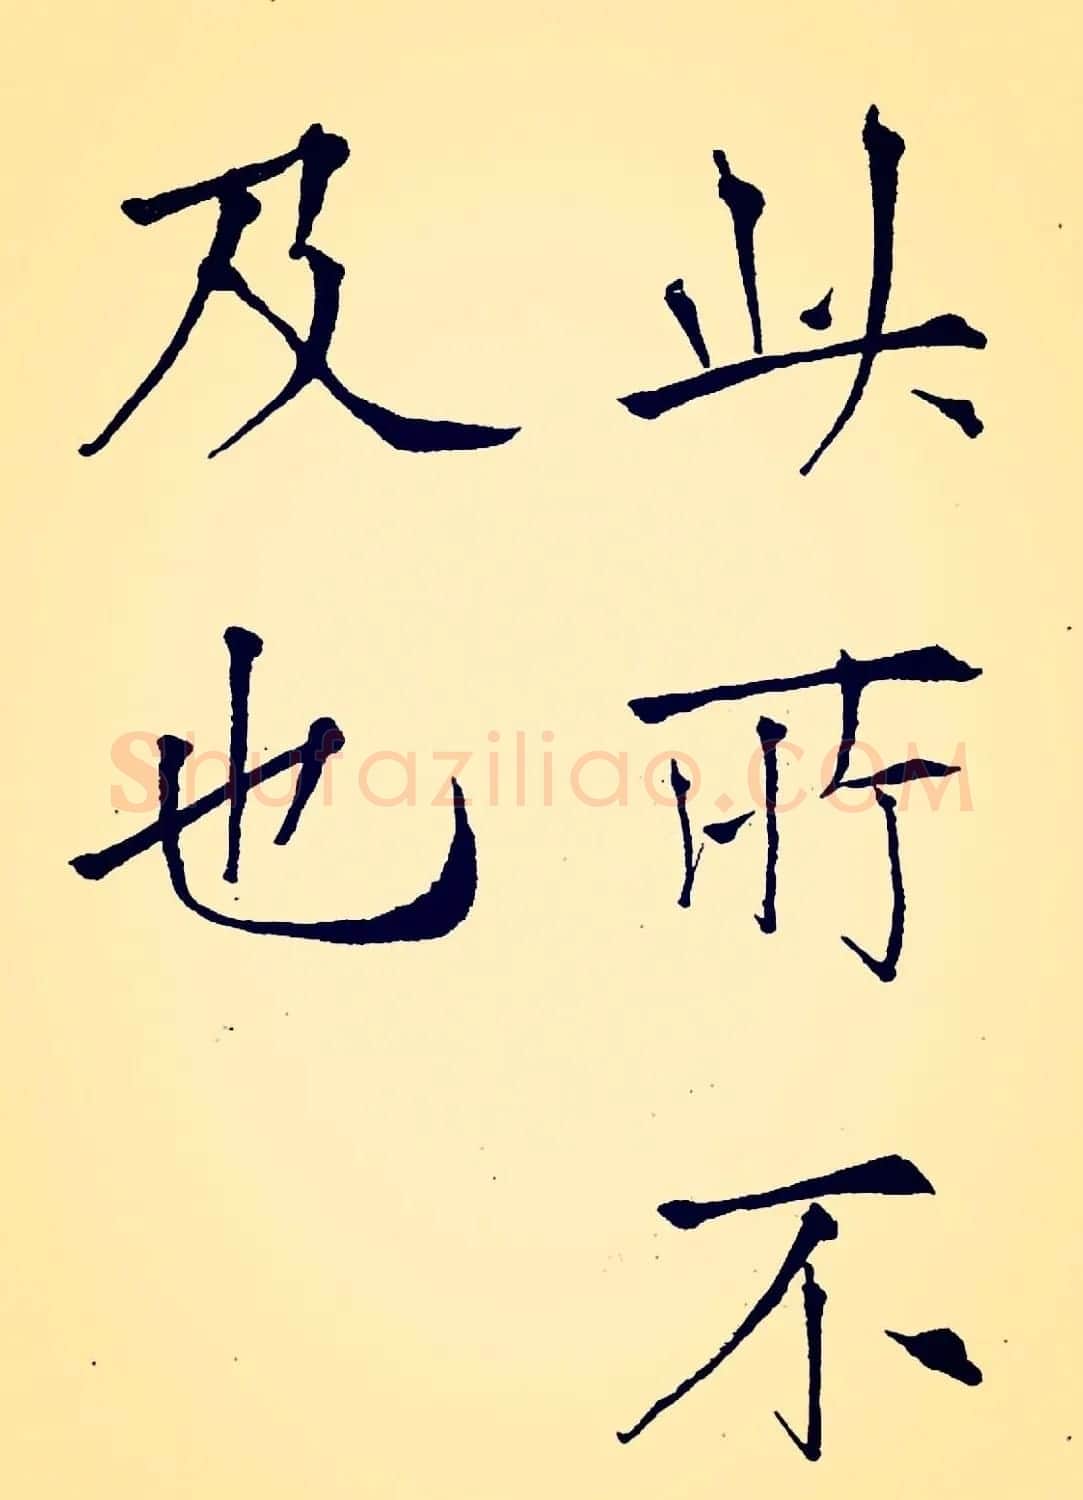 所不
及也
Shufaziliao.COM